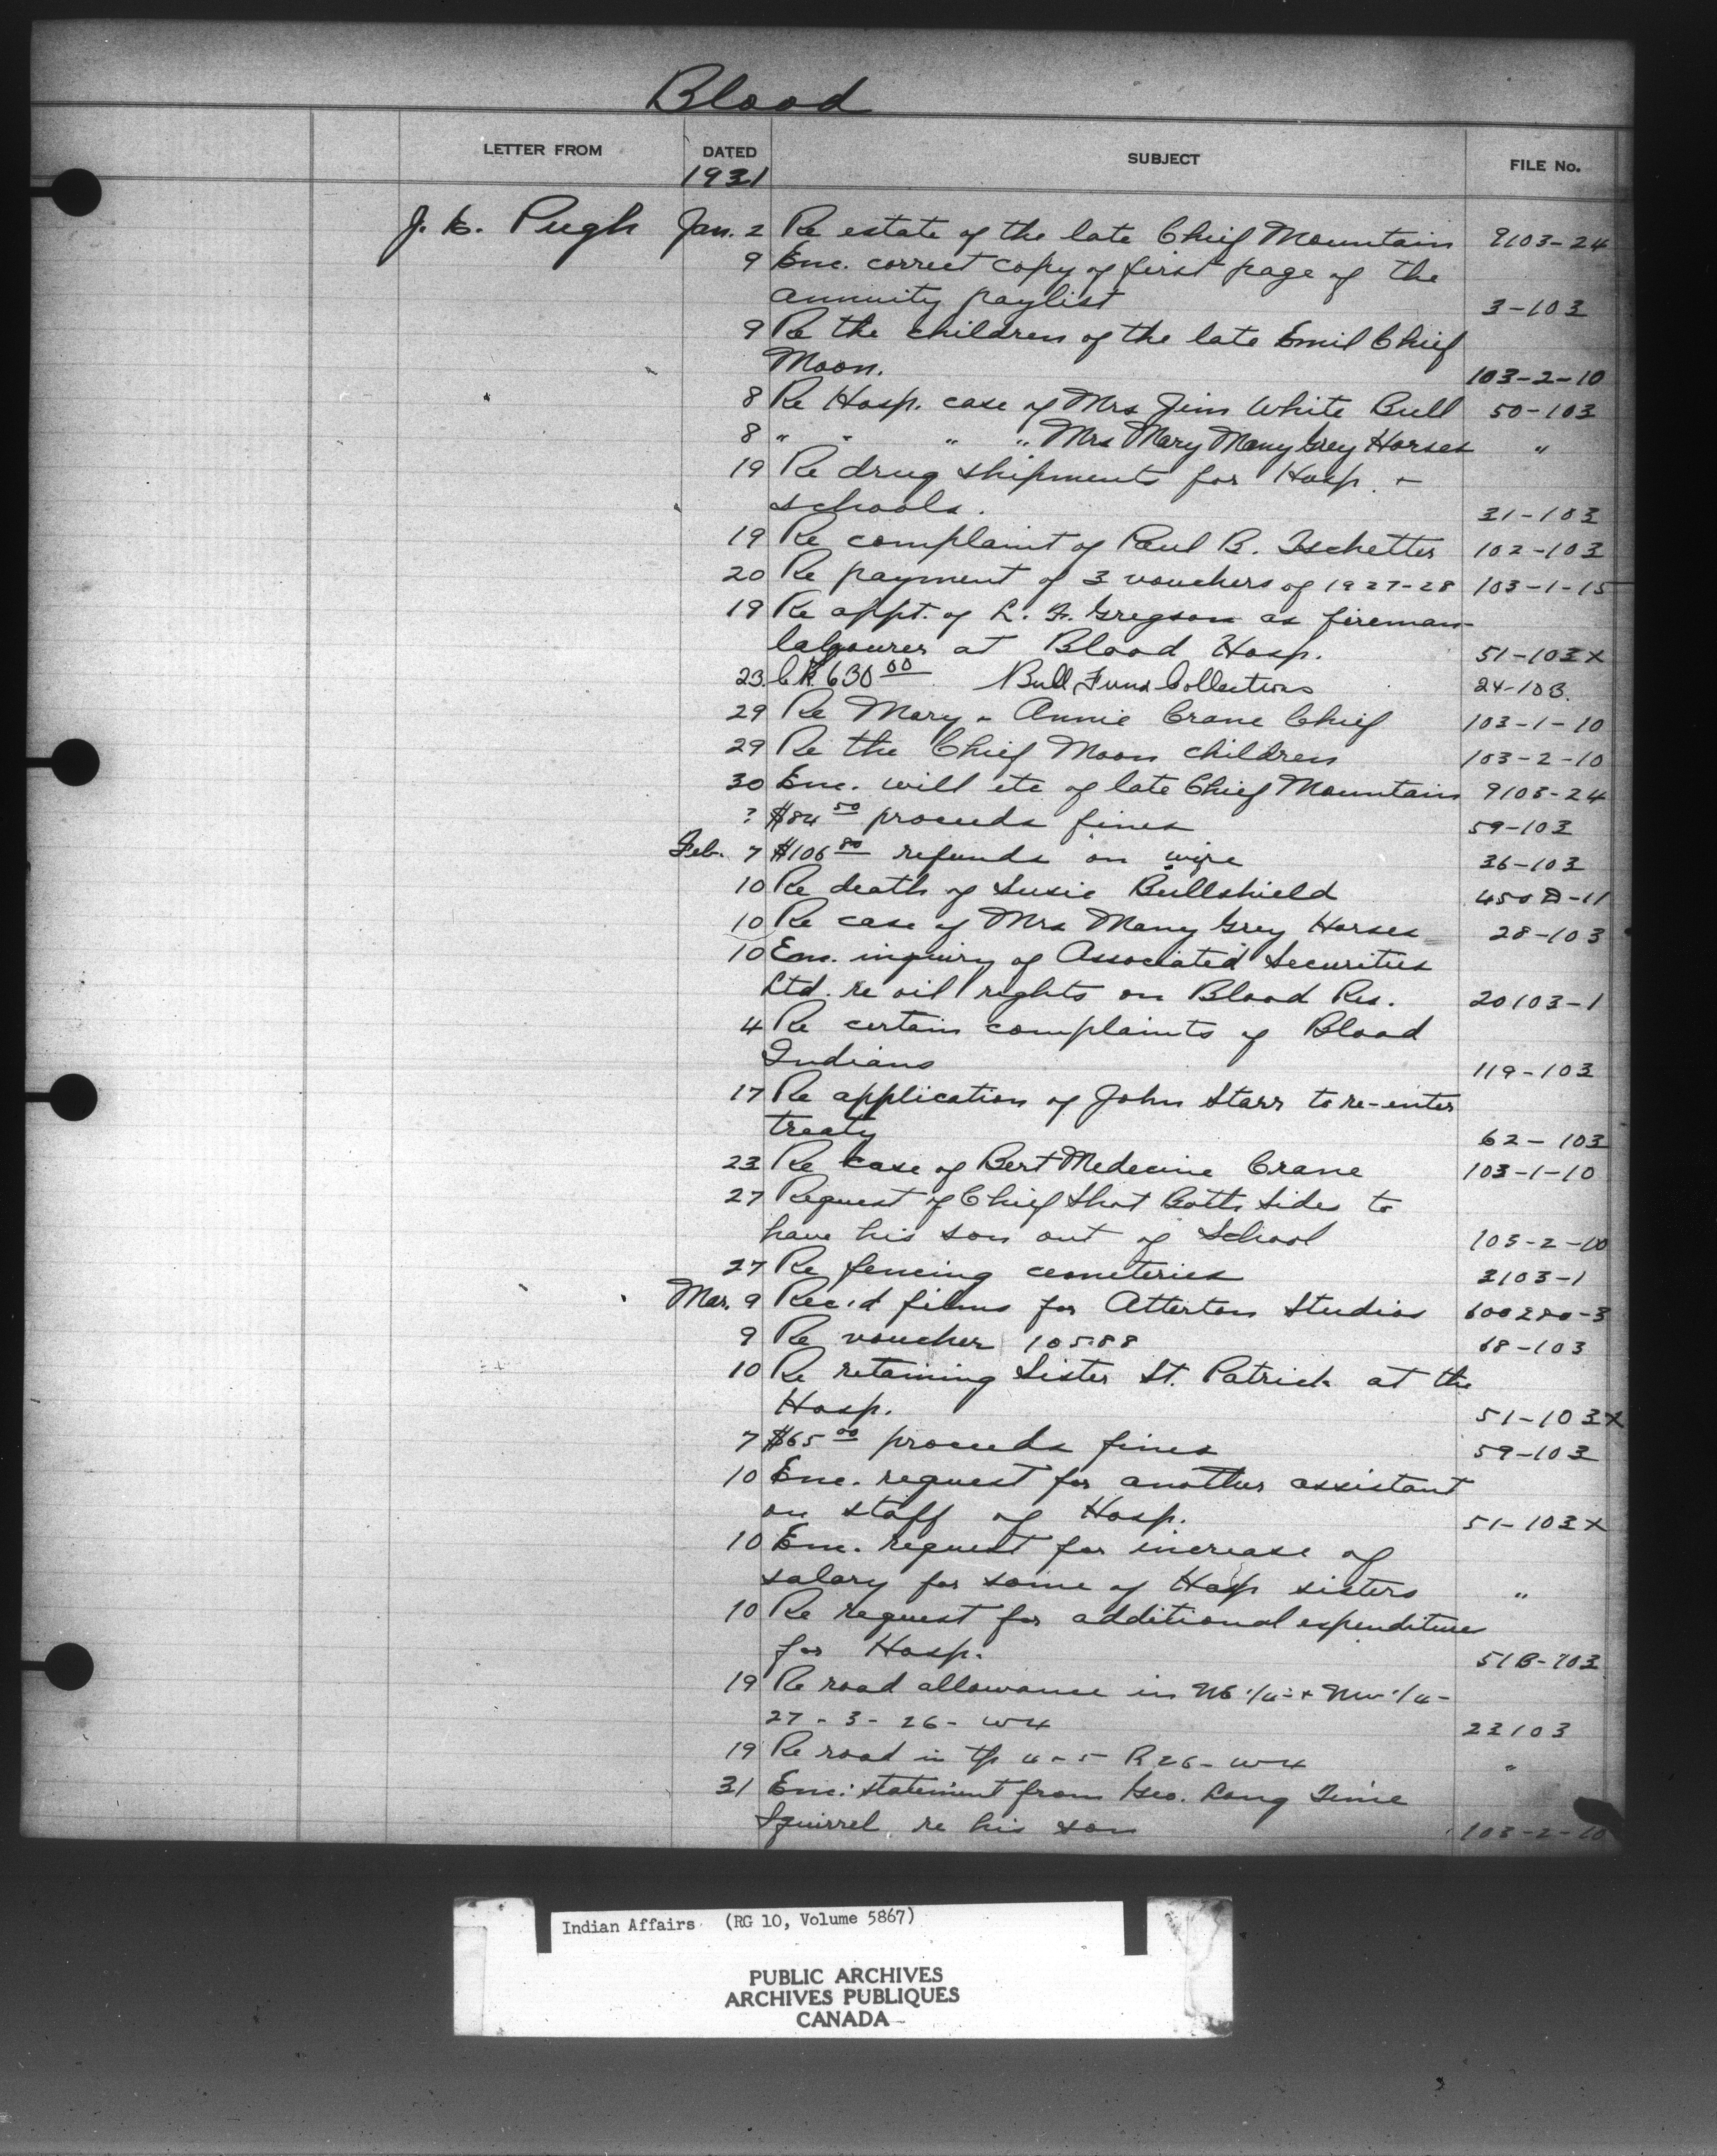 Blood
LETTER FROM DATED SUBJECT FILE No.
1931
J. E. Pugh Jan. 2 Re estate of the late Chief Mountain 9103-24
9 Enc. correct copy of first page of the
annuity paylist 3-103
9 Re the children of the late Emil Chief
Moon. 103-2-10
8 Re Hosp. case of Mrs Jim White Bull 50-103
8 " " " " Mrs Mary Many Grey Horses "
19 Re drug shipments for Hosp. +
schools. 31-103
19 Re complaint of Paul B. Tschetter 102-103
20 Re payment of 3 vouchers of 1927-28 103-1-15
19 Re appt. of L. F. Gregson as fireman-
labourer at Blood Hosp. 51-103X
23 630 00 Bull Fund Collections 24-103.
29 Re Mary - Annie Crane Chief 103-1-10
29 Re the Chief Moon children 103-2-10
30 Enc. will etc of late Chief Mountain 9103-24
? $84 50 proceeds fines 59-103
Feb. 7 $106 80 refunds on wire 36-103
10 Re death of Susie Bullshield 450 -11
10 Re case of Mrs Many Grey Horses 28-103
10 Enc. inquiry of Associated Securities
Ltd. re oil rights on Blood Res. 20103-1
4 Re certain complaints of Blood
Indians 119-103
17 Re application of John Starr to re-enter
treaty 62-103
23 Re case of Bert Medecine Crane 103-1-10
27 Request of Chief Shot Both Sides to
have his son out of School 103-2-10
27 Re fencing cemeteries 3103-1
Mar. 9 Rec'd films for Atterton Studios 600280-3
9 Re voucher 10588 68-103
10 Re retaining Sister St. Patrick at the
Hosp. 51-103X
7 $65 00 proceeds fines 59-103
10 Enc. request for another assistant
on staff of Hosp. 51-103X
10 Enc. request for increase of
salary for some of Hosp sisters "
10 Re request for additional expenditure
for Hosp. 51B-103
19 Re road allowance in NE 1/4 + NW 1/4 -
27 - 3 - 26 - W4 23103
19 Re road in tp 4 - 5 R 26 - W4 "
31 Enc. statement from Geo. Long Time
Squirrel re his son 103-2-10
Indian Affairs (RG 10, Volume 5867)
PUBLIC ARCHIVES
ARCHIVES PUBLIQUES
CANADA